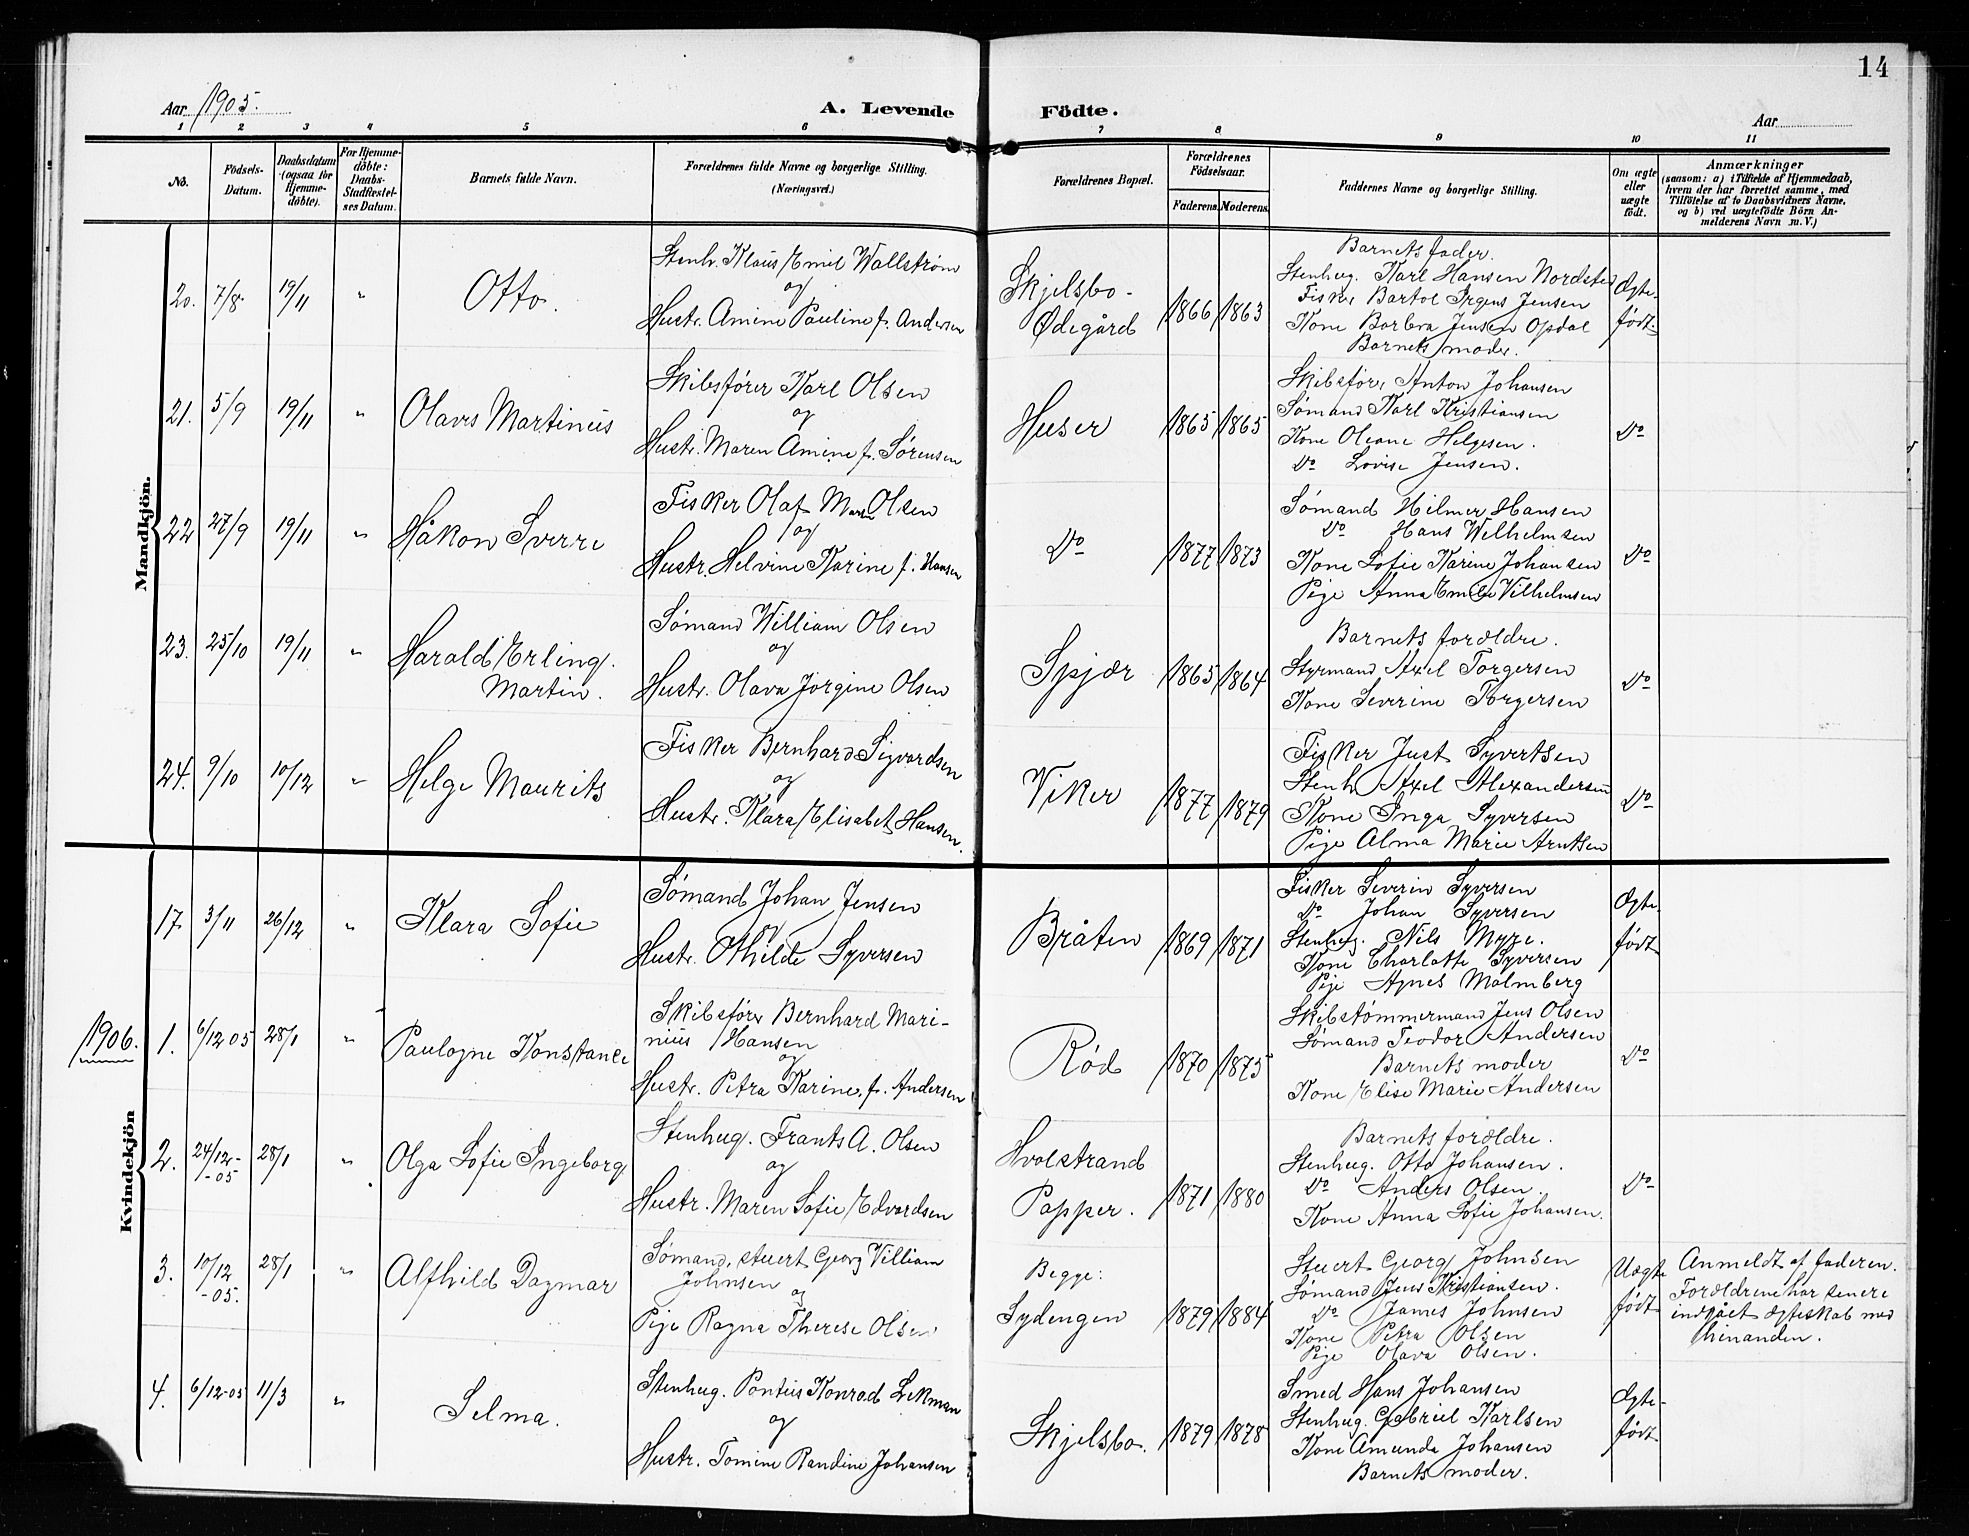 14
Aar 1905.
A. Levende Födte.
Aar
1 2 3 4 5 6 7 8 9 10 11
No.
Födsels-Datum.
Daabsdatum (ogsaa for Hjemme-döbte).
For Hjemme-döbte: Daabs-Stadfæstel-ses Datum.
Barnets fulde Navn.
Forældrenes fulde Navne og borgerlige Stilling.
(Næringsvei.)
Forældrenes Bopæl.
Forældrenes Födselsaar.
Faderens. Moderens.
Faddernes Navne og borgerlige Stilling.
Om ægte eller uægte födt.
Anmærkninger
(saasom: a) i Tilfælde af Hjemmedaab,
hvem der har forrettet samme, med
Tilföielse af to Daabsvidners Navne,
og b) ved uægtefödte Börn An-
melderens Navn m. V.)
Mandkjön.
20. 7/8 19/11 "
Otto.
Stenh. Klaus Emil Wallstrøm
og
Hustr. Amine Pauline f. Andersen
Skjelsbo-
Ødegård
1866 1863
Barnets fader.
Stenhug. Karl Hansen Nordsted
Fisker Bartol Irgens Jensen
Kone Barbra Jensen Opdal
Barnets moder.
Ægte-
født.
21. 5/9 19/11 "
Olavs Martinius
Skibsfører Karl Olsen
og
Hustr. Maren Amine f. Sørensen
Huser
1865 1865
Skibsför. Anton Johansen
Sømand Karl Kristiansen
Kone Oleane Helgesen.
Do Lovise Jensen.
Do
22 27/9 19/11 "
Håkon Sverre
Fisker Olaf Martin Olsen
og
Hustr. Helvine Karine f. Hansen
Do
1877 1873
Sømand Hilmer Hansen
Do Hans Wilhelmsen
Kone Sofie Karine Johansen
Pige Anna Emilie Vilhelmsen
Do
23. 25/10 19/11 "
Harald Erling
Martin.
Sømand William Olsen
og
Hustr. Olava Jørgine Olsen
Spjær
1865 1864
Barnets forældre.
Styrmand Axel Torgersen
Kone Severine Torgersen
Do
24. 9/10 10/12 "
Helge Maurits
Fisker Bernhard Sigvardsen
og
Hustr. Klara Elisabet Hansen.
Viker
1877 1879
Fisker Just Syvertsen
Stenh Axel Alexandersen
Kone Inga Syversen
Pige Alma Marie Arntsen
Do
Kvindekjön
17. 3/11 26/12 "
Klara Sofie
Sømand Johan Jensen
og
Hustr. Othilde Syversen
Bråten
1869 1871
Fisker Severin Syversen
Do Johan Syversen
Stenhug. Nils Myre.
Kone Charlotte Syversen
Pige Agnes Malmberg
Ægte-
født
1906.
1. 6/12 05 28/1 "
Paulogne Konstance
Skibsfører Bernhard Mari-
nius Hansen
og
Hustr. Petra Karine f. Andersen
Rød
1870 1875
Skibstømmermand Jens Olsen
Sømand Teodor Andersen
Barnets moder
Kone Elise Marie Andersen
Do
2. 24/12-05 28/1 "
Olga Sofie Ingeborg
Stenhug. Frants A. Olsen
og
Hustr. Maren Sofie Edvardsen
Hvalstrand
Papper.
1871 1880
Barnets forældre.
Stenhug. Otto Johansen.
Do Anders Olsen.
Kone Anna Sofie Johansen.
Do
3. 10/12-05. 28/1 "
Alfhild Dagmar
Sømand, stuert Georg Villiam
Johnsen
og
Pige Ragna Therese Olsen
Begge:
Sydengen
1879 1884
Stuert Georg Johnsen
Sømand Jens Kristiansen.
Do James Johnsen
Kone Petra Olsen
Pige Olava Olsen.
Uægte
født
Anmeldt af faderen.
Forældrene har senere
indgået ægteskab med
hinanden.
4. 6/12-05 11/3 "
Selma.
Stenhug. Pontus Konrad Lekman
og
Hustr. Tomine Randine Johansen
Skjelsbo.
1879 1878
Smed Hans Johansen
Stenhug. Gabriel Karlsen
Kone Amunda Johansen
Barnets moder.
Ægte-
født